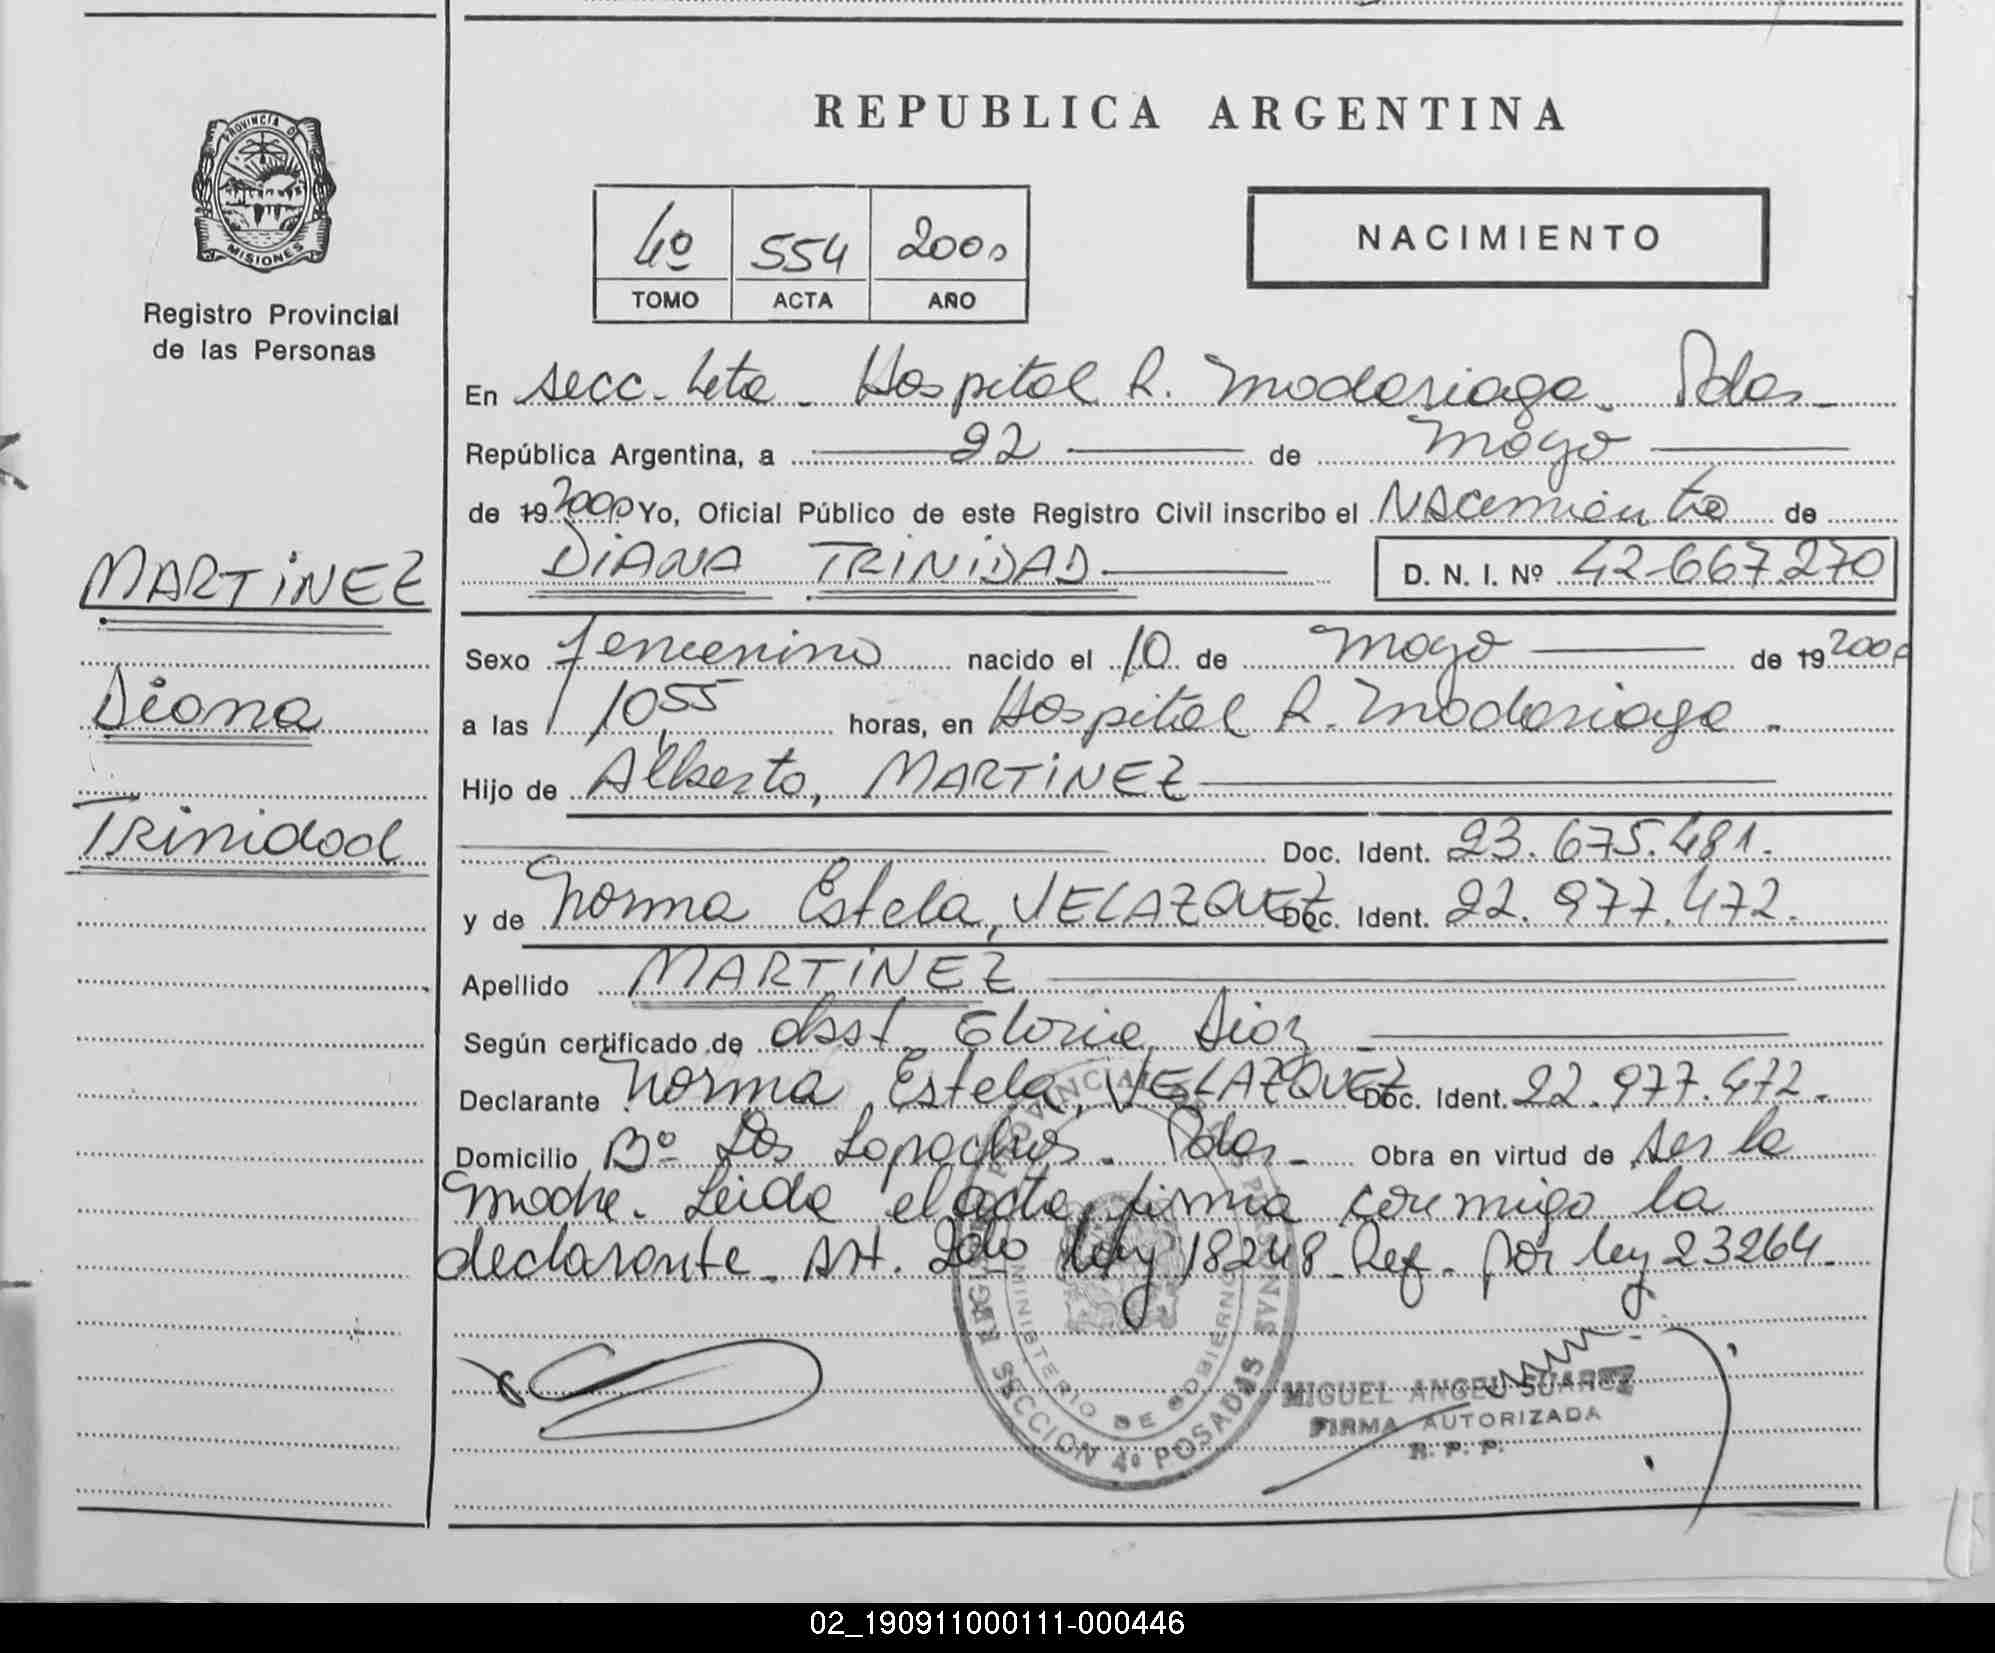 REPUBLICA ARGENTINA
PROVINCIA D
MISIONES
Registro Provincial
de las Personas
4º 554 2000
TOMO ACTA AÑO
NACIMIENTO
En secc. 4ta. Hospital R. Madariaga. Pdas.
República Argentina, a 22 de Mayo
de 19 2000 Yo, Oficial Público de este Registro Civil inscribo el Nacimiento de
DIANA TRINIDAD D. N. I. Nº 42.667.270
MARTINEZ
Diana
Trinidad
Sexo femenino nacido el 10 de Mayo de 19 2000
a las 10,55 horas, en Hospital R. Madariaga.
Hijo de Alberto, MARTINEZ
Doc. Ident. 23.675.481.
y de Norma Estela, VELAZQUEZ Doc. Ident. 22.977.472.
Apellido MARTINEZ
Según certificado de obst. Gloria Diaz
Declarante Norma Estela, VELAZQUEZ Doc. Ident. 22.977.472.
Domicilio Bº Los Lapachos. Pdas. Obra en virtud de ser la
madre. Leida el acta, firma conmigo la
declarante. Art. 2do ley 18248. Ref. por ley 23264.
REGISTRO PROVINCIAL DE LAS PERSONAS
MINISTERIO DE GOBIERNO
SECCION 4º POSADAS
MIGUEL ANGEL SUAREZ
FIRMA AUTORIZADA
R. P. P.
02_190911000111-000446